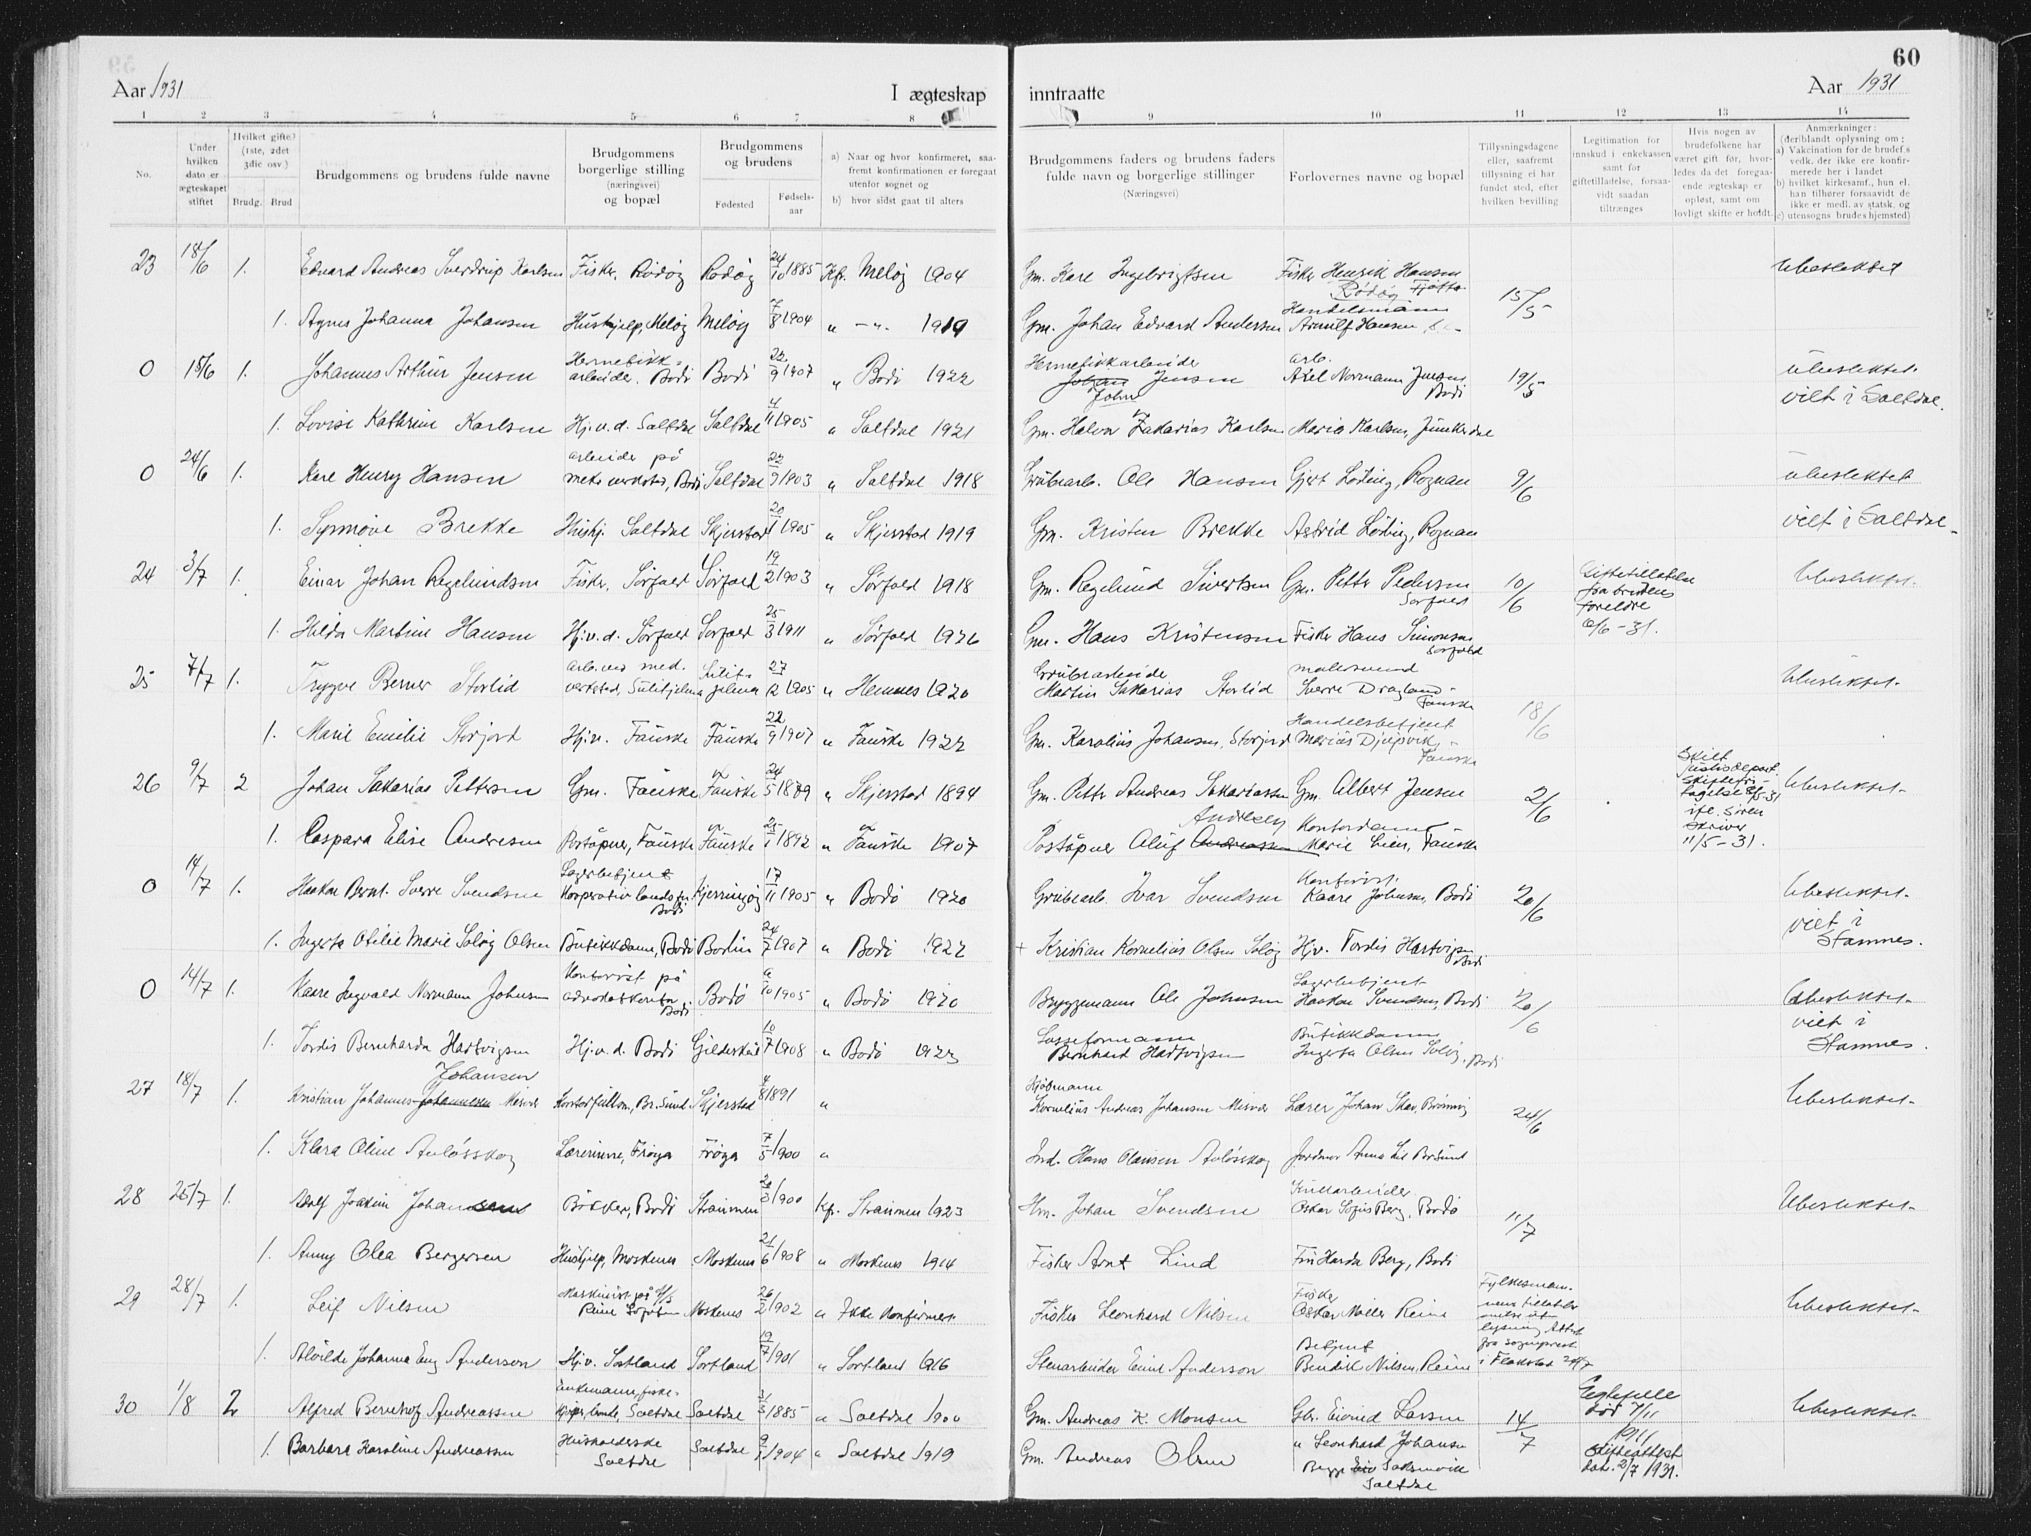 60
Aar 1931
I ægteskap
inntraatte
Aar 1931
1 2 3 4 5 6 7 8 9 10 11 12 13 14
No.
Under hvilken dato er ægteskapet stiftet
Hvilket gifte? (1ste, 2det 3die osv.)
Brudg. Brud
Brudgommens og brudens fulde navne
Brudgommens borgerlige stilling (næringsvei) og bopæl
Brudgommens og brudens
Fødested
Fødsels-aar
a) Naar og hvor konfirmeret, saafremt konfirmationen er foregaat utenfor sognet og
b) hvor sidst gaat til alters
Brudgommens faders og brudens faders fulde navn og borgerlige stillinger (Næringsvei)
Forlovernes navne og bopæl
Tillysningsdagene eller, saafremt tillysning ei har fundet sted, efter hvilken bevilling
Legitimation for innskud i enkekassen samt for giftetilladelse, forsaavidt saadan tiltrænges
Hvis nogen av brudefolkene har været gift før, hvorledes da det foregaaende ægteskap er opløst, samt om lovligt skifte er holdt.
Anmærkninger: (deriblandt oplysning om:
a) Vakcination for de brudef.s vedk. der ikke ere konfirmerede her i landet
b) hvilket kirkesamf., hun el. han tilhører forsaavidt de ikke er medl. av statsk. og
c) utensogns brudes hjemsted)
23 18/6 1. Edvard Andreas Sverdrup Karlsen Fisker, Rødøy Rødøy 24/10 1885 Kf. Meløy 1904 Gm. Karl Ingebrigtsen Fisker Henrik Hansen Rødøy 15/5 Ubeslektet
1. Agnes Johanna Johansen Hushjelp, Meløy Meløy 7/8 1904 " - " - 1919 Gm. Johan Edvard Andersen Handelsmann Arnulf Hansen
0 15/6 1. Johannes Arthur Jensen Hermetikkarbeider. Bodø Bodø 22/9 1907 " Bodø 1922 Hermetikkarbeider John Jensen Arb. Axel Normann Jensen Bodø 19/5 Ubeslektet. viet i Saltdal.
1. Lovise Kathrine Karlsen Hj.v.d. Saltdal Saltdal 4/11 1905 " Saltdal 1921 Gm. Halvor Zakarias Karlsen Maria Karlsen, Junkerdal
0 24/6 1. Kare Henry Hansen arbeider på mek. verksted, Bodø Saltdal 22/9 1903 " Saltdal 1918 Grubearb. Ole Hansen Gjert Løding, Rognan 9/6 Ubeslektet
1. Synnøve Brekke Hushj. Saltdal Skjerstad 20/1 1905 " Skjerstad 1919 Gm. Kristen Brekke Astrid Løding, Rognan viet i Saltdal
24 3/7 1. Einar Johan Regelindsen Fisker, Sørfold Sørfold 19/2 1903 " Sørfold 1918 Gm. Regelind Sivertsen Gm. Petter Pedersen Sørfold 10/6 Giftetillatelse fra brudens foreldre 6/6-31. Ubeslektet.
1. Hilda Martine Hansen Hj.v.d. Sørfold Sørfold 25/3 1911 " Sørfold 1926 Gm. Hans Kristensen Fisker Hans Simonsen Sørfold
25 7/7 1. Trygve Berner Storlid Arb. ved mek. verksted, Sulitjelma Sulitjelma 27/12 1905 " Hemnes 1920 Grubearbeider Martin Sakarias Storlid malersvend Sverre Dragland Fauske 18/6 Ubeslektet.
1. Marie Emilie Storjord Hj.v. Fauske Fauske 22/9 1907 " Fauske 1922 Gm. Karolius Johansen, Storjord Handelsbetjent Marius Djupvik, Fauske
26 9/7 2 Johan Sakarias Pettersen Gm. Fauske Fauske 24/5 1879 " Skjerstad 1894 Gm. Petter Andreas Sakariassen Gm. Albert Jensen 2/6 Skilt Justisdepart. ifl. soren skriver 11/5-31. Ubeslektet.
1. Caspara Elise Andresen Poståpner, Fauske Fauske 25/1 1892 " Fauske 1907 Poståpner Oluf Andreassen Andresen Kontordame Marie Lien, Fauske
0 14/7 1. Haakon Bernt. Sverre Svendsen Lagerbetjent Bodø Kjerringøy 17/11 1905 " Bodø 1920 Grubearb. Ivar Svendsen Kontorist. Kaare Johnsen, Bodø 20/6 Ubeslektet. viet i Stamnes.
1. Ingerta Otilie Marie Soløy Olsen Butikkdame, Bodø Bodin 24/7 1907 " Bodø 1922 + Kristian Kornelius Olsen Soløy Hj.v. Tordis Hartvigsen Bodø
0 14/7 1. Kaare Ingvald Normann Johnsen Kontorist på advokatkontor Bodø Bodø 10 1905 " Bodø 1920 Bryggemann Ole Johnsen Lagerbetjent Haakon Svendsen, Bodø 20/6 Ubeslektet. viet i Stamnes.
1. Tordis Bernharda Hartvigsen Hj.v.d. Bodø Gildeskål 10/7 1908 " Bodø 1923 Losseformann Bernhard Hartvigsen Butikkdame Ingerta Olsen Soløy, Bodø
27 18/7 1. Kristian Johannes Johannesen Johansen Misvær Kontorfullm, Br.Sund Skjerstad 4/8 1891 " Kjøbmann Kornelius Andreas Johansen Misvær Lærer Johan Skar Brønnøy 24/6 Ubeslektet.
1. Klara Oline Auløsskog Lærerinne, Frøya Frøya 7/5 1900 " Ind. Hans Olausen Auløsskog Jordmor Anna Lie Br.Sund
28 25/7 1. Rolf Joakim Johansen Bøkker, Bodø Straumen 1900 Kf. Straumen 1923 Hm. Johan Svendsen Kullarbeider Oskar Sofus Berg, Bodø 11/7 Ubeslektet.
1. Anny Olea Bergersen Hushjelp, Moskenes Moskenes 21/6 1908 " Moskenes 1914 Fisker Arnt Lind Fru Harda Berg, Bodø
29 28/7 1. Leif Nilsen Maskinist på Reine Moskenes 26/2 1902 " Ikke konfirmert Fisker Leonhard Nilsen Fisker Oskar Møller Reine Fylkesmannens fra sogneprest i Flakstad 24/7 Ubeslektet.
1. Alvilde Johanna Eng Anderson Hj.v. Sortland Sortland 19/7 1901 " Sortland 1916 Stenarbeider Emil Anderson Betjent Bendik Nilsen, Reine
30 1/8 2 Alfred Bernhof Andreassen Enkemann, Saltdal Saltdal 1885 " Saltdal 1900 Gm. Andreas K. Monsen Gbr. Eivind Larsen 14/7 Eglefelle død 7/11 1911 Skifteattest dat. 2/7 1931. Ubeslektet.
1. Barbara Karoline Andreassen Husholderske Saltdal Saltdal 9/1 1904 " Saltdal 1919 Gm. Andreas Olsen " Leonhard Johansen Begge Saksenvik Saltdal